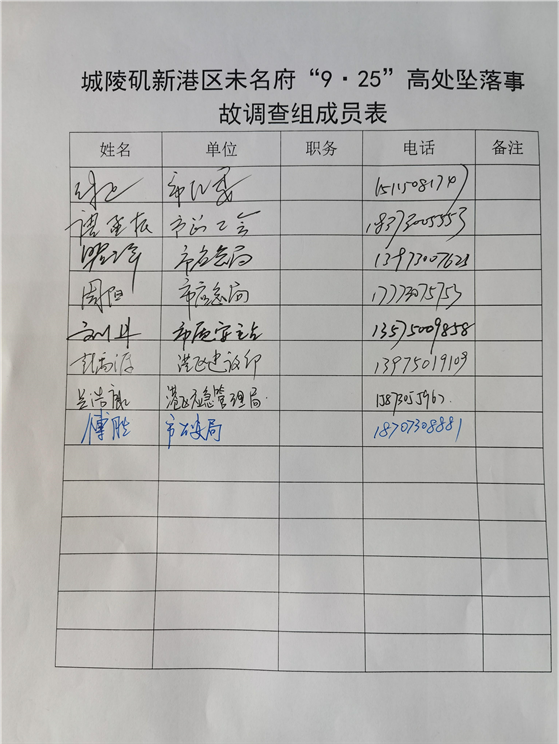 城陵矶新港区未名府“9·25”高处坠落事
故调查组成员表
姓名 单位 职务 电话 备注
市纪委 15115081747
市总工会 18373005553
市应急局 13973007621
周阳 市应急局 17773075753
文川 市质安主占 13575009858
港区建设 13975019109
吴浩 港区应急管理局. 15873055967.
傅胜 市公安局 18707308881